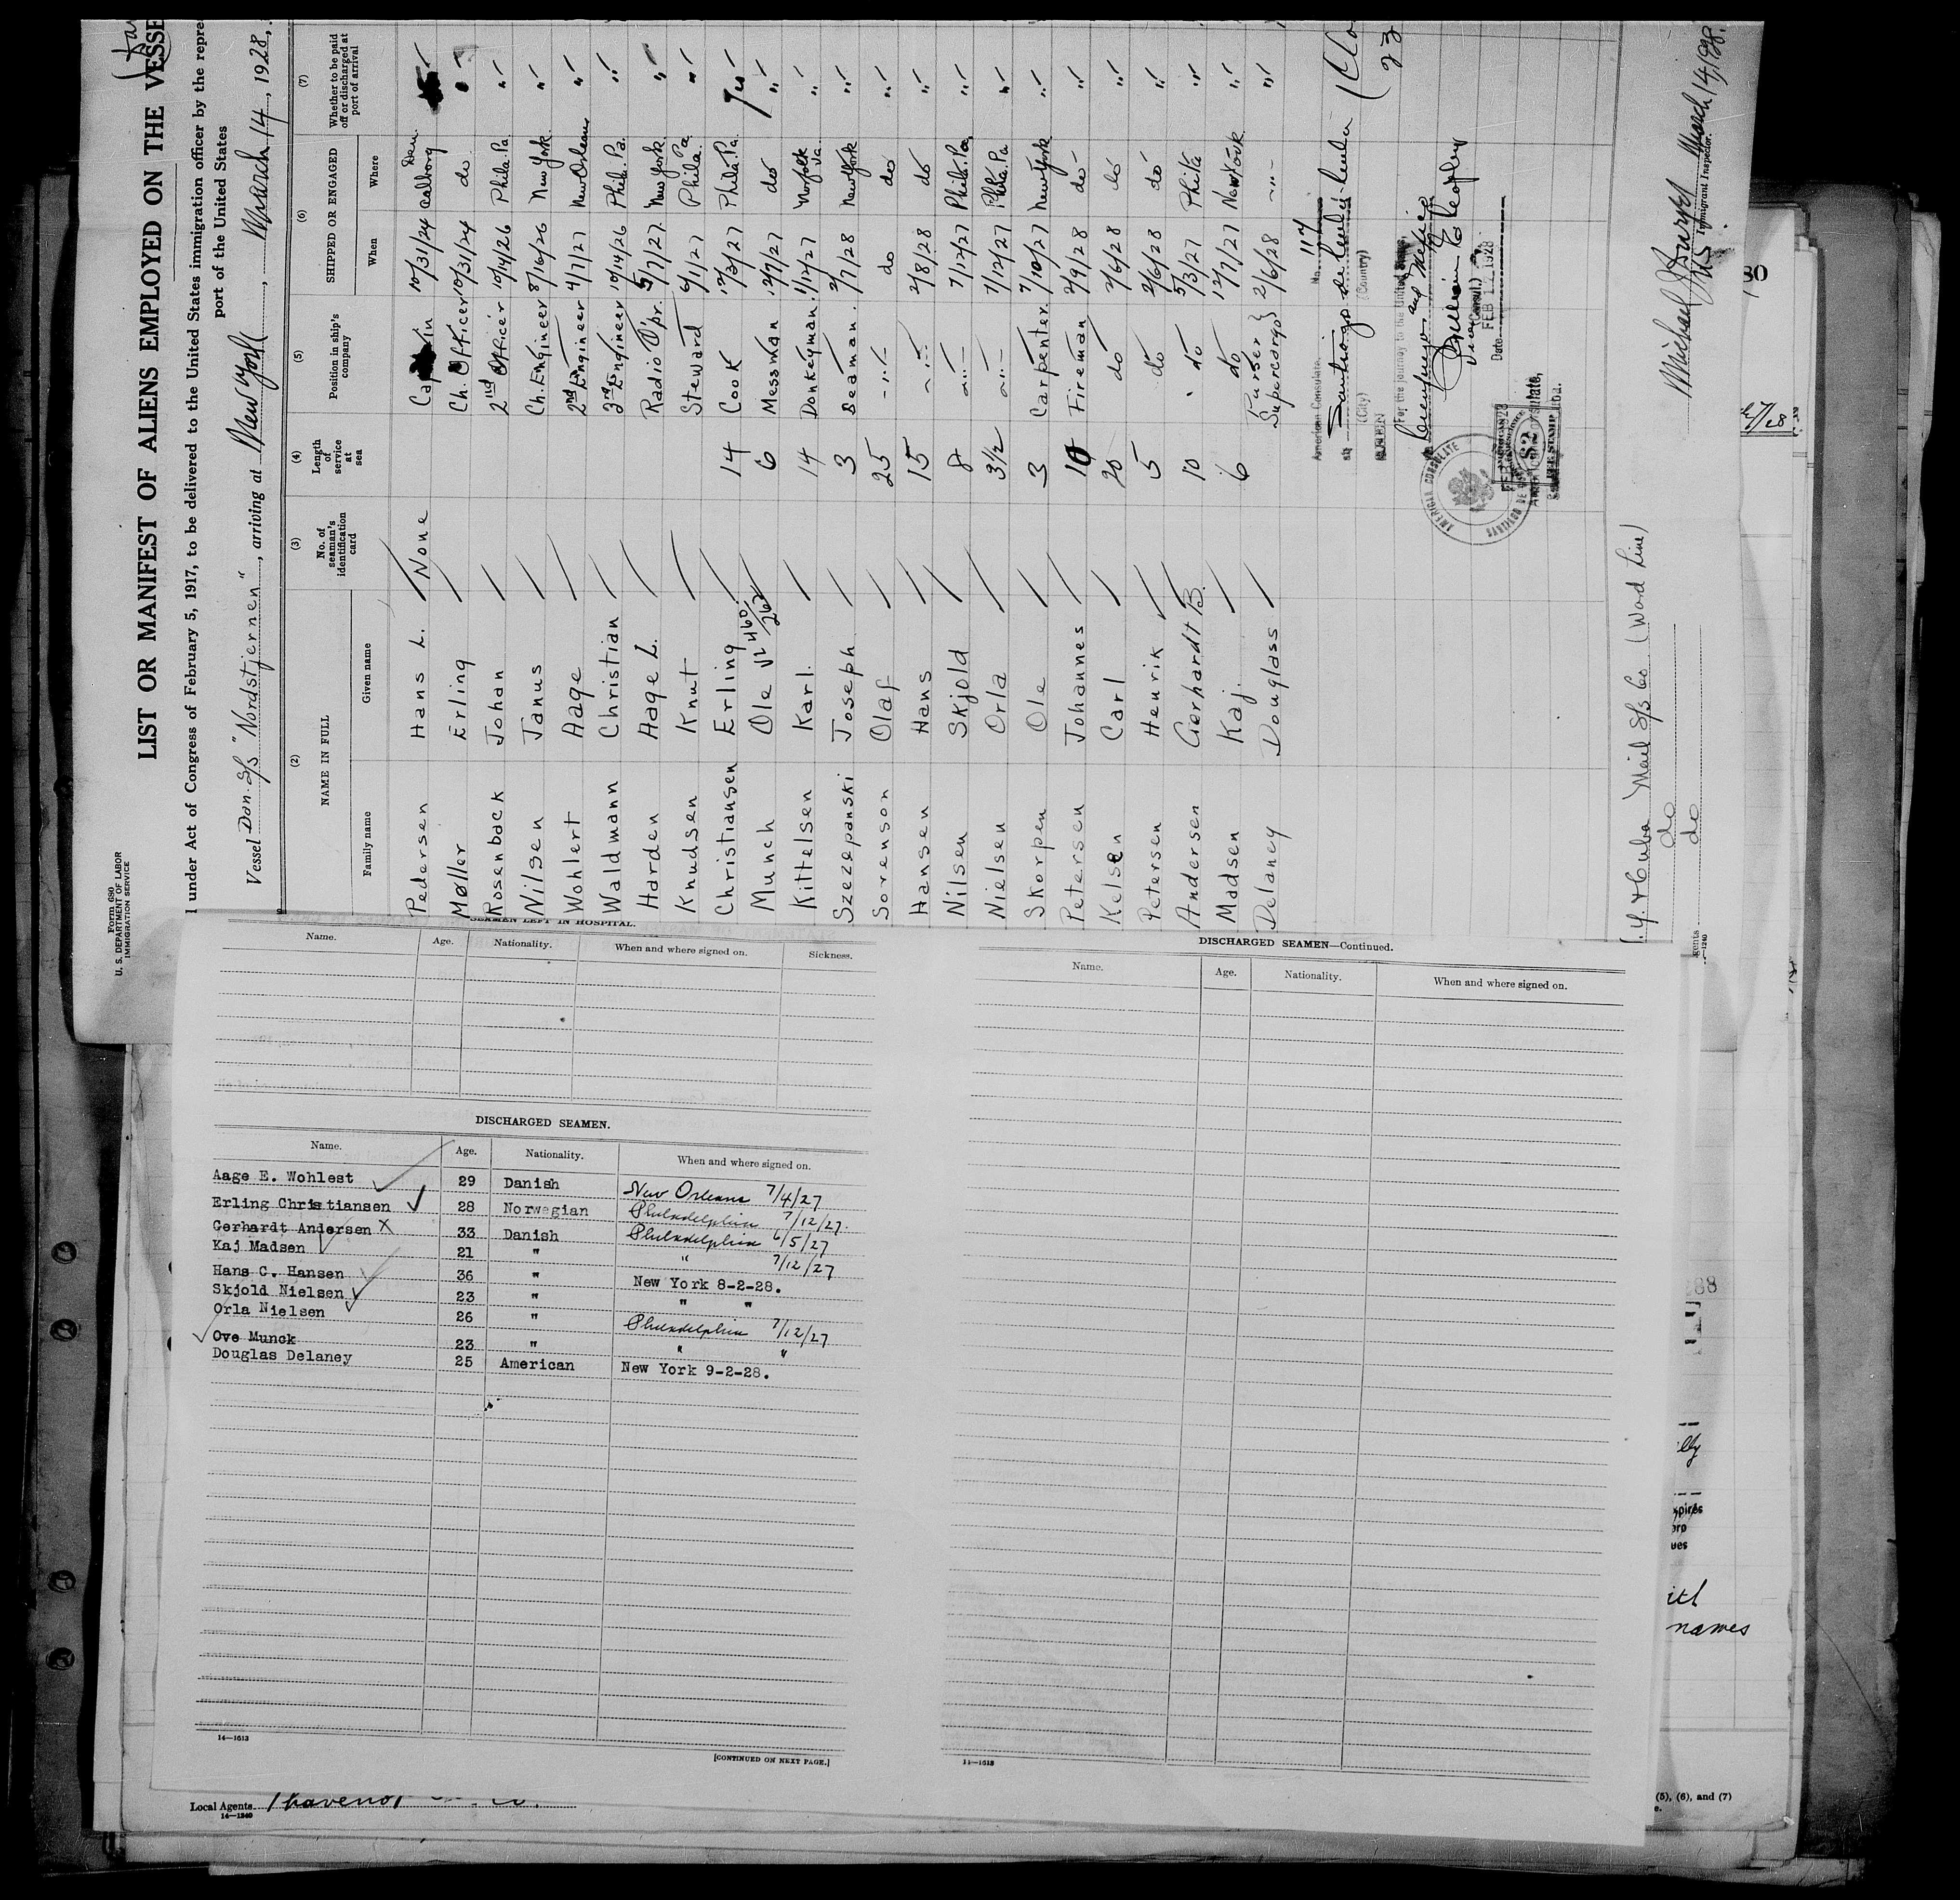 Form 680
U. S. DEPARTMENT OF LABOR
IMMIGRATION SERVICE
LIST OR MANIFEST OF ALIENS EMPLOYED ON THE VESSE
under Act of Congress of February 5, 1917, to be delivered to the United States immigration officer by the repre
port of the United States
Vessel Dan. S/S "Nordstjernen", arriving at New York, March 14, 1928,
(2) (3) (4) (5) (6) (7)
NAME IN FULL No. of seaman's identification card Length of service at sea Position in ship's company SHIPPED OR ENGAGED Whether to be paid off or discharged at port of arrival
Family name Given name When Where
Pedersen Hans L. None 10/31/24 Aalborg Den.
Møller Erling Ch. Officer 10/31/24 do "
Rosenback Johan 2nd Officer 10/14/26 Phila. Pa "
Nilsen Janus Ch. Engineer 8/16/26 New York "
Wohlert Aage 2nd Engineer 4/7/27 New Orleans "
Waldmann Christian 3rd Engineer 10/14/26 Phila. Pa. "
Harden Aage L. Radio Opr. 5/7/27 New York "
Knudsen Knut Steward 6/1/27 Phila. Pa "
Christiansen Erling 14 Cook 12/3/27 Phila. Pa. Yes
Munch Ole 6 Messman 12/7/27 do "
Kittelsen Karl. 14 Donkeyman. 1/12/27 Norfolk Va. "
Szezepanski Joseph 3 Seaman. 2/7/28 New York "
Sorenson Olaf 25 -"- do do "
Hansen Hans 15 -"- 2/8/28 do "
Nilsen Skjold 8 -"- 7/12/27 Phila. Pa. "
Nielsen Orla 3½ -"- 7/12/27 Phila. Pa "
Skorpen Ole 3 Carpenter. 7/10/27 New York "
Petersen Johannes 10 Fireman 2/9/28 do "
Kelsen Carl 20 do 2/6/28 do "
Petersen Henrik 5 do 2/6/28 do "
Andersen Gerhardt B. 10 do 5/3/27 Phila "
Madsen Kaj. 6 do 12/7/27 New York "
Delaney Douglass Purser Supercargo 2/6/28 -"- "
American Consulate, No. 117
at Santiago de Cuba Cuba
(City) (Country)
SEEN
For the journey to the United States,
Cienfuegos and Mexico
Vice (Consul.)
Date FEB 12 1928
AMERICAN CONSULATE
23
N.Y. & Cuba Mail S/S Co (Ward Line)
do
do
March 14, 1928.
Immigrant Inspector.
SEAMEN LEFT IN HOSPITAL.
Name. Age. Nationality. When and where signed on. Sickness.
DISCHARGED SEAMEN.
Name. Age. Nationality. When and where signed on.
Aage E. Wohlest 29 Danish New Orleans 7/4/27
Erling Christiansen 28 Norwegian Philadelphia 7/12/27.
Gerhardt Andersen X 33 Danish Philadelphia 6/5/27
Kaj Madsen 21 " " 7/12/27
Hans C. Hansen 36 " New York 8-2-28.
Skjold Nielsen 23 " " "
Orla Nielsen 26 " Philadelphia 7/12/27
Ove Munck 23 " " "
Douglas Delaney 25 American New York 9-2-28.
14—1613
[CONTINUED ON NEXT PAGE.]
DISCHARGED SEAMEN—Continued.
Name. Age. Nationality. When and where signed on.
11—1613
Local Agents
14—1240
(5), (6), and (7)
names